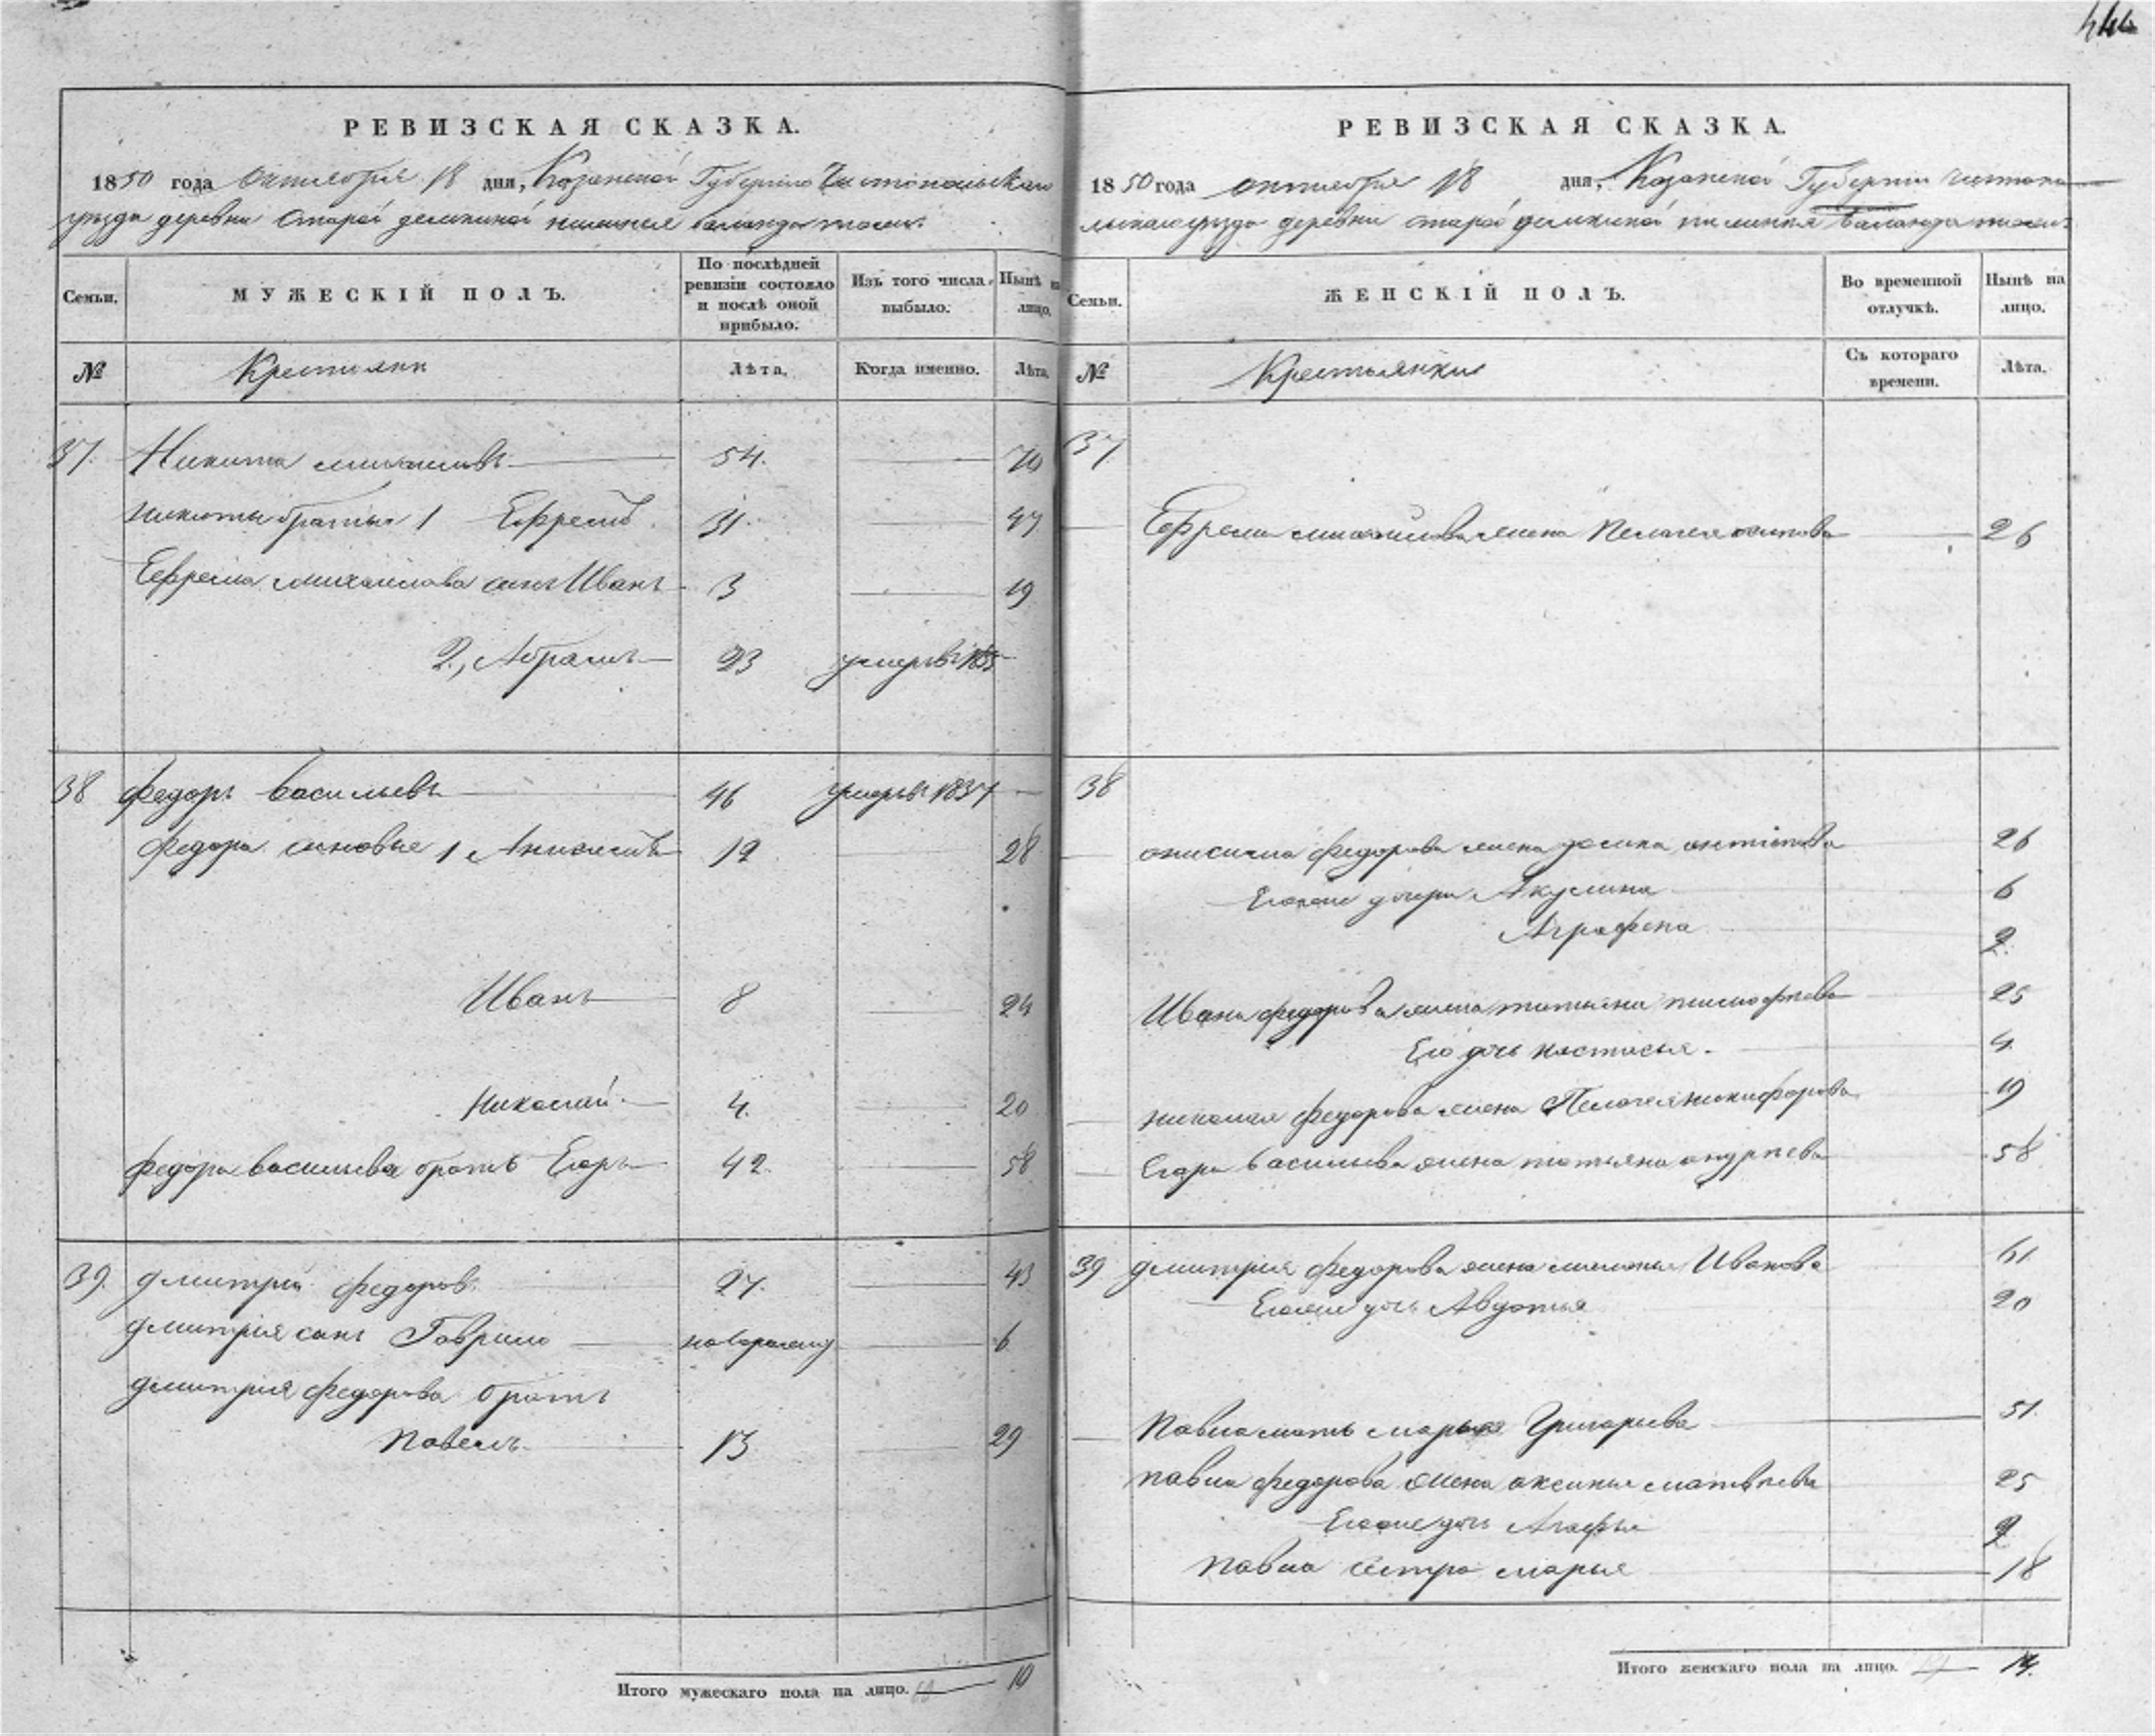 РЕВИЗСКАЯ СКАЗКА.
1850 года октября 18 дня, Казанской Губернiи Чистопольскаго
уезда деревни Старой
Семьи. МУЖЕСКIЙ ПОЛЪ. По послѣдней ревизiи состояло и послѣ оной прибыло. Изъ того числа выбыло. Нынѣ на лицо.
№ Крестьяни Лѣта. Когда именно. Лѣта.
37. Никита михайловъ 54. 70
никиты братья 1 Ефремъ 31. 47
Ефрема михайлова сынъ Иванъ 3 19
2, Абрамъ 23 умеръ въ 1835
38 федоръ васильевъ 46 умеръ в 1837
федора сыновья 1 Анисимъ 12 28
Иванъ 8 24
Николай 4. 20
федора васильева братъ Егоръ 42 58
39. дмитрiй федоровъ 27. 43
дмитрiя сынъ Гаврило новорожд 6
дмитрiя федорова братъ
Павелъ 13 29
Итого мужескаго пола на лицо. 10 10
444
РЕВИЗСКАЯ СКАЗКА.
1850 года октября 18 дня, Казанской Губернiи чистопо
льскаго уезда деревни старой
Семьи. ЖЕНСКIЙ ПОЛЪ. Во временной отлучкѣ. Нынѣ на лицо.
№ Крестьянки Съ котораго времени. Лѣта.
37
Ефрема михайлова жена Пелагея осипова 26
38
анисима федорова жена антипова 26
Егоже дочери Акулина 6
Аграфена 2
Ивана федорова жена татьяна тимофеева 25
Его дочь настасья. 4
николая федорова жена Пелагея никифорова 19
Егора васильева жена татьяна 58
39 дмитрия федорова жена маланья Иванова 41
Егоже дочь Авдотья 20
Павла мать марья Григорьева 51.
павла федорова жена аксинья матвѣева 25
Егоже дочь Агафья 2
Павла сестра марья 18
Итого женскаго пола на лицо. 14.